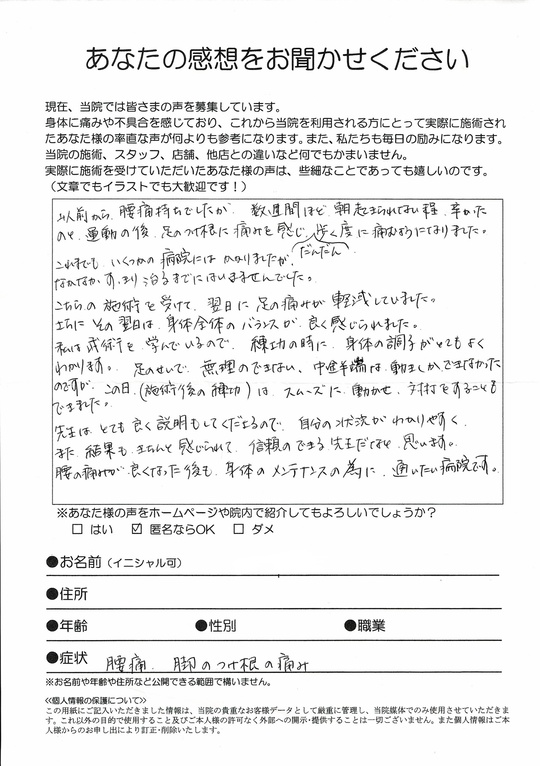 あなたの感想をお聞かせください
現在、当院では皆さまの声を募集しています。
身体に痛みや不具合を感じており、これから当院を利用される方にとって実際に施術され
たあなた様の率直な声が何よりも参考になります。また、私たちも毎日の励みになります。
当院の施術、スタッフ、店舗、他店との違いなど何でもかまいません。
実際に施術を受けていただいたあなた様の声は、些細なことであっても嬉しいのです。
（文章でもイラストでも大歓迎です！）
以前から腰痛持ちでしたが、数週間ほど朝起きられない程、辛かった
のと、運動の後、足のつけ根に痛みを感じ、歩く度に痛むようになりました。
だんだん
これまでも、いくつかの病院にはかかりましたが、
なかなかすっきり治るまでにはいきませんでした。
こちらの施術を受けて、翌日に足の痛みが軽減していました。
さらにその翌日は、身体全体のバランスが良く感じられました。
私は武術を学んでいるので、練功の時に、身体の調子がとてもよく
わかります。足のせいで、無理のできない、中途半端な動きしかできなかった
のですが、この日（施術後の練功）は、スムーズに動かせ、対打をすることも
できました。
先生はとても良く説明もしてくださるので、自分の状況がわかりやすく、
また結果もきちんと感じられて、信頼のできる先生だなぁと思います。
腰の痛みが良くなった後も、身体のメンテナンスの為に、通いたい病院です。
※あなた様の声をホームページや院内で紹介してもよろしいでしょうか？
□ はい ☑ 匿名ならOK □ ダメ
●お名前（イニシャル可）
●住所
●年齢 ●性別 ●職業
●症状 腰痛、脚のつけ根の痛み
※お名前や年齢や住所など公開できる範囲で構いません。
≪個人情報の保護について≫
この用紙にご記入いただきました情報は、当院の貴重なお客様データとして厳重に管理し、当院媒体でのみ使用させていただきま
す。これ以外の目的で使用すること及びご本人様の許可なく外部への開示・提供することは一切ございません。また個人情報はご本
人様からのお申し出により訂正・削除いたします。